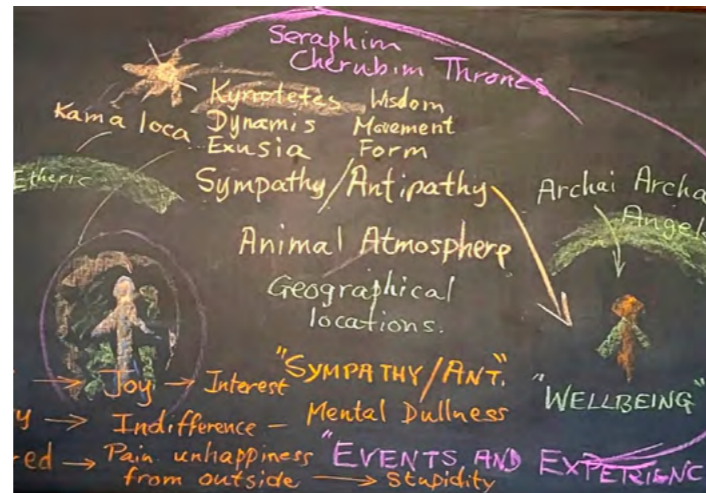 Seraphim
Cherubim Thrones
Kyriotetes Wisdom
Kamaloca Dynamis Movement
Exusia Form
Etheric
Sympathy/Antipathy
Archai Archa
Angel
Animal Atmosphere
Geographical
locations.
→ Joy → Interest
"SYMPATHY/ANT."
"WELLBEING"
y → Indifference – Mental Dullness
red → Pain unhappiness
from outside → Stupidity
"EVENTS AND EXPERIENC